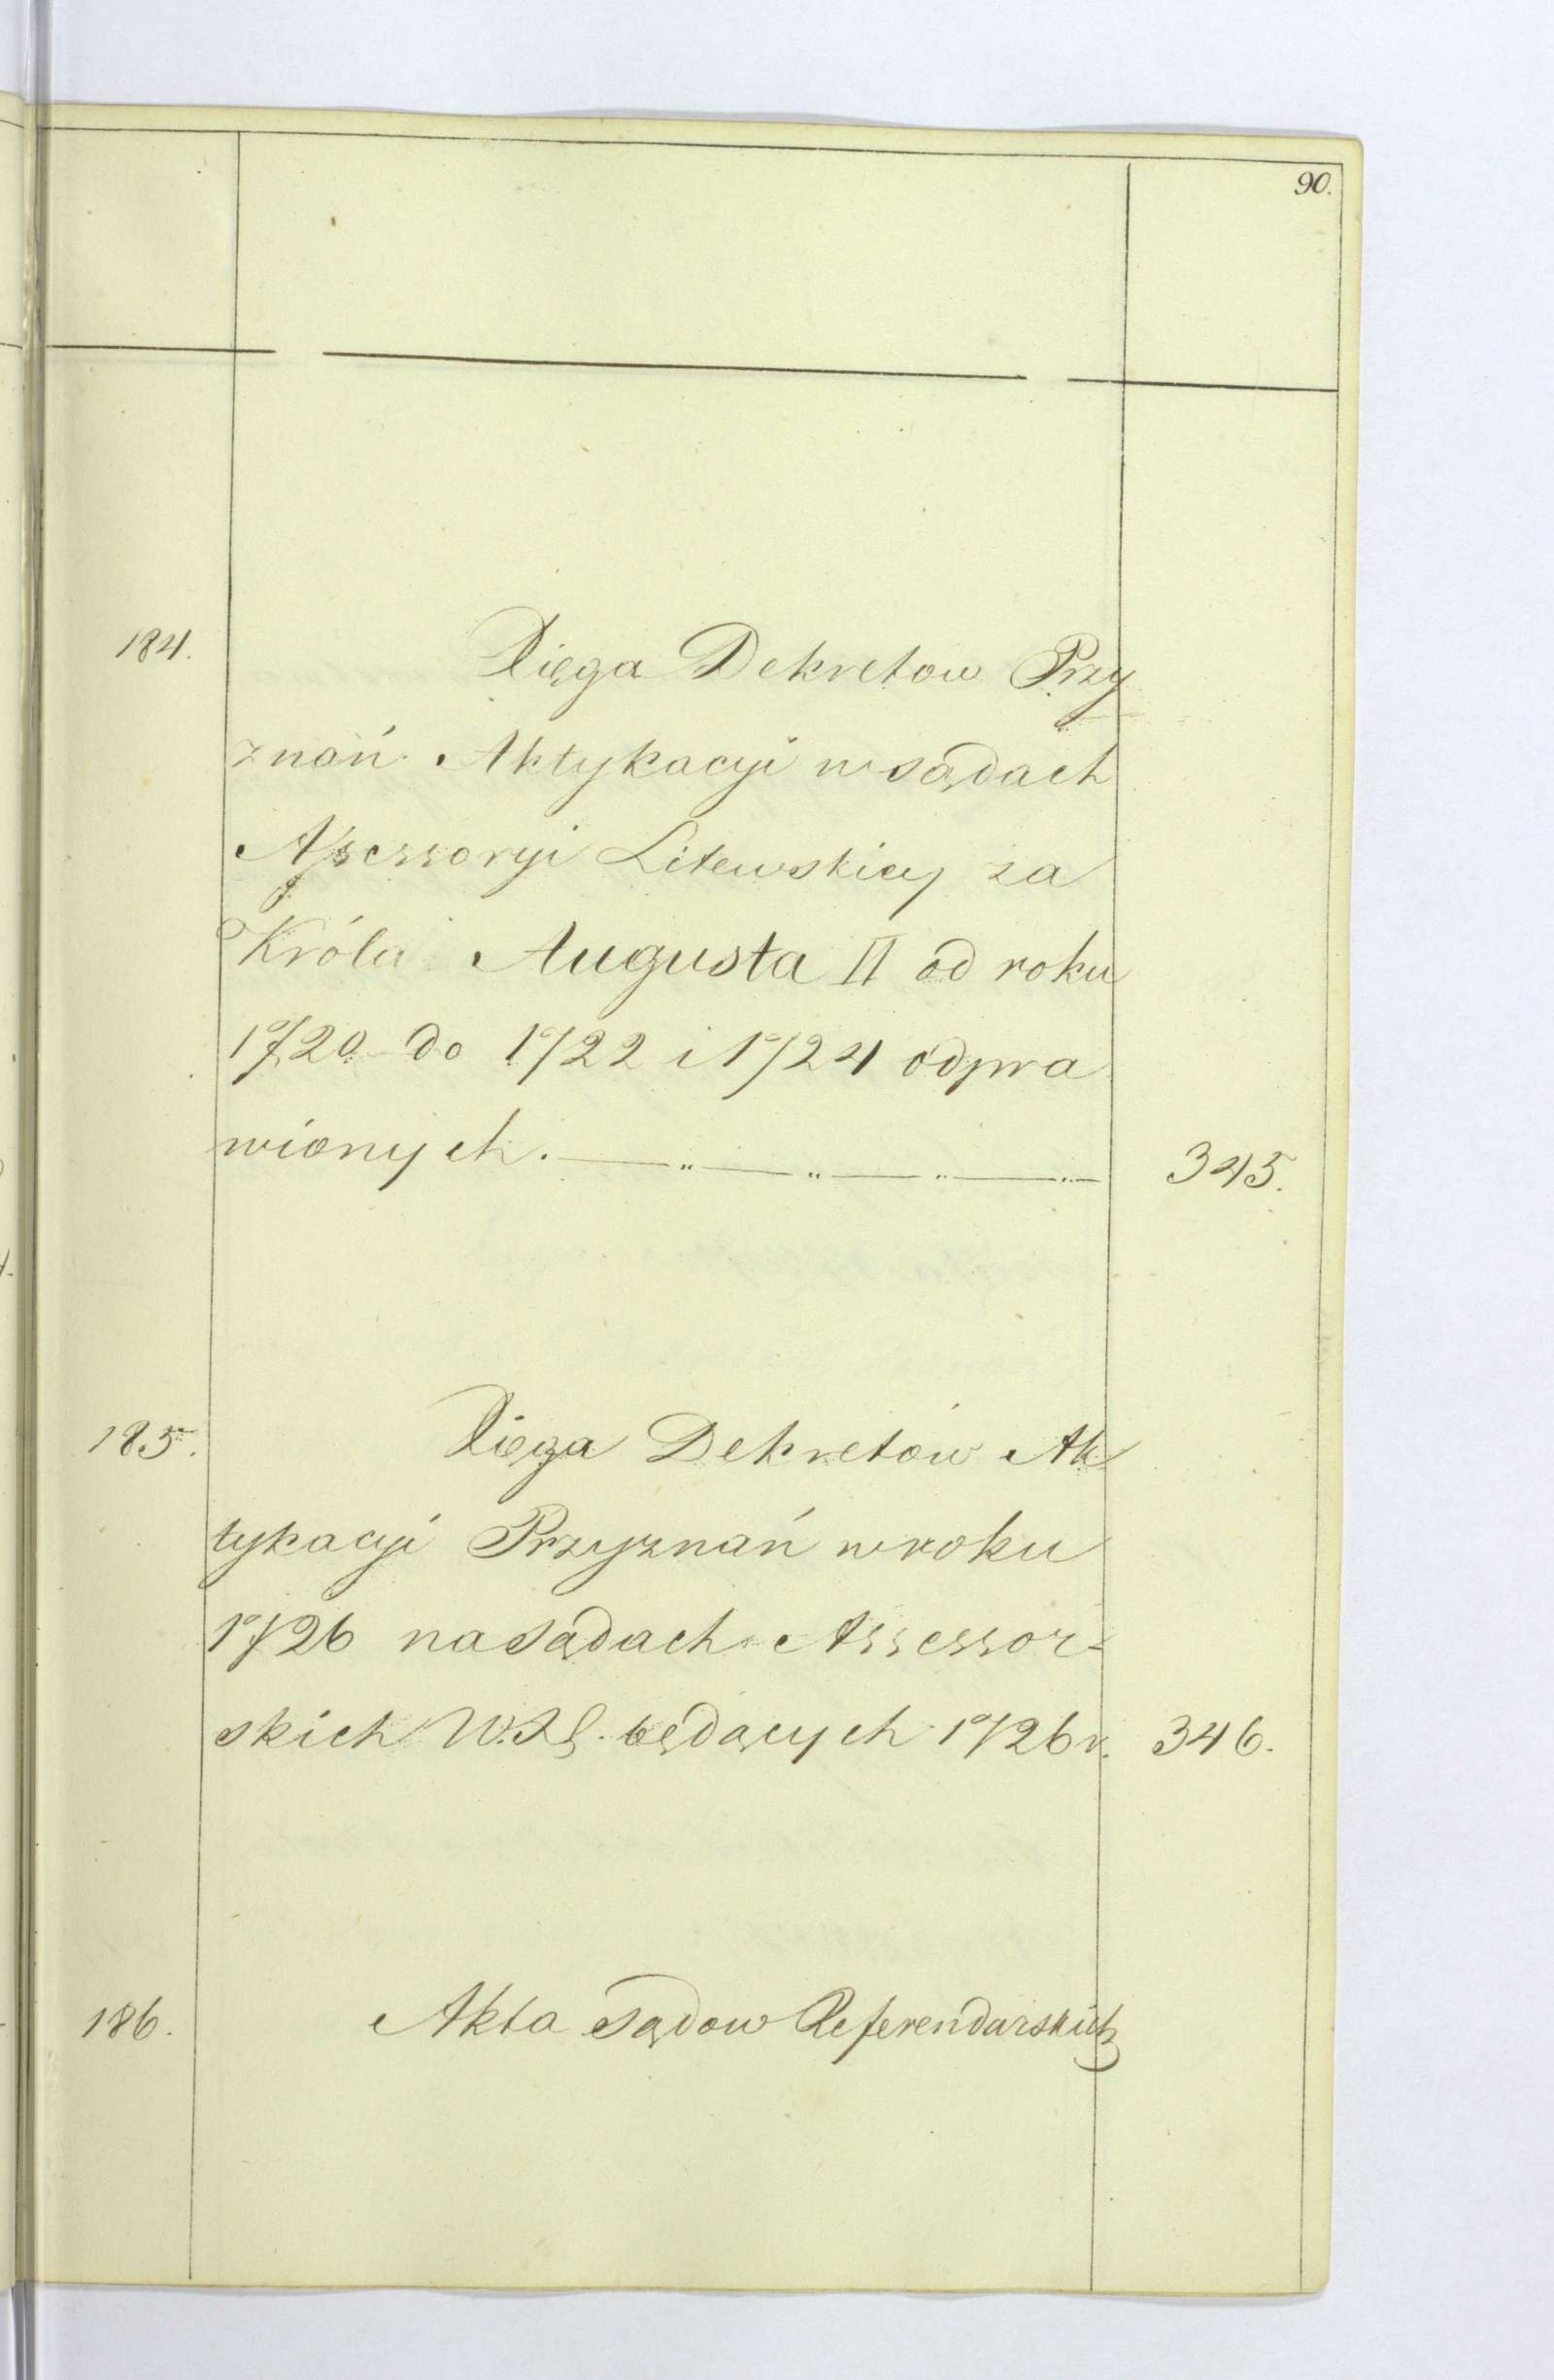 90.
184. Xięga Dekretow Przy
znań Aktykacyi w sądach
Assessoryi Litewskiey za
Króla Augusta II od roku
1720 do 1722 i 1724 odpra
wionych. — „ — „ — „ — „ — 345.
185. Xięga Dekretów Ak
tykacyi Przyznań w roku
1726 na sądach Assessor-
skich W.X.L. będących 1726 r. 346.
186. Akta sądow Referendarskich